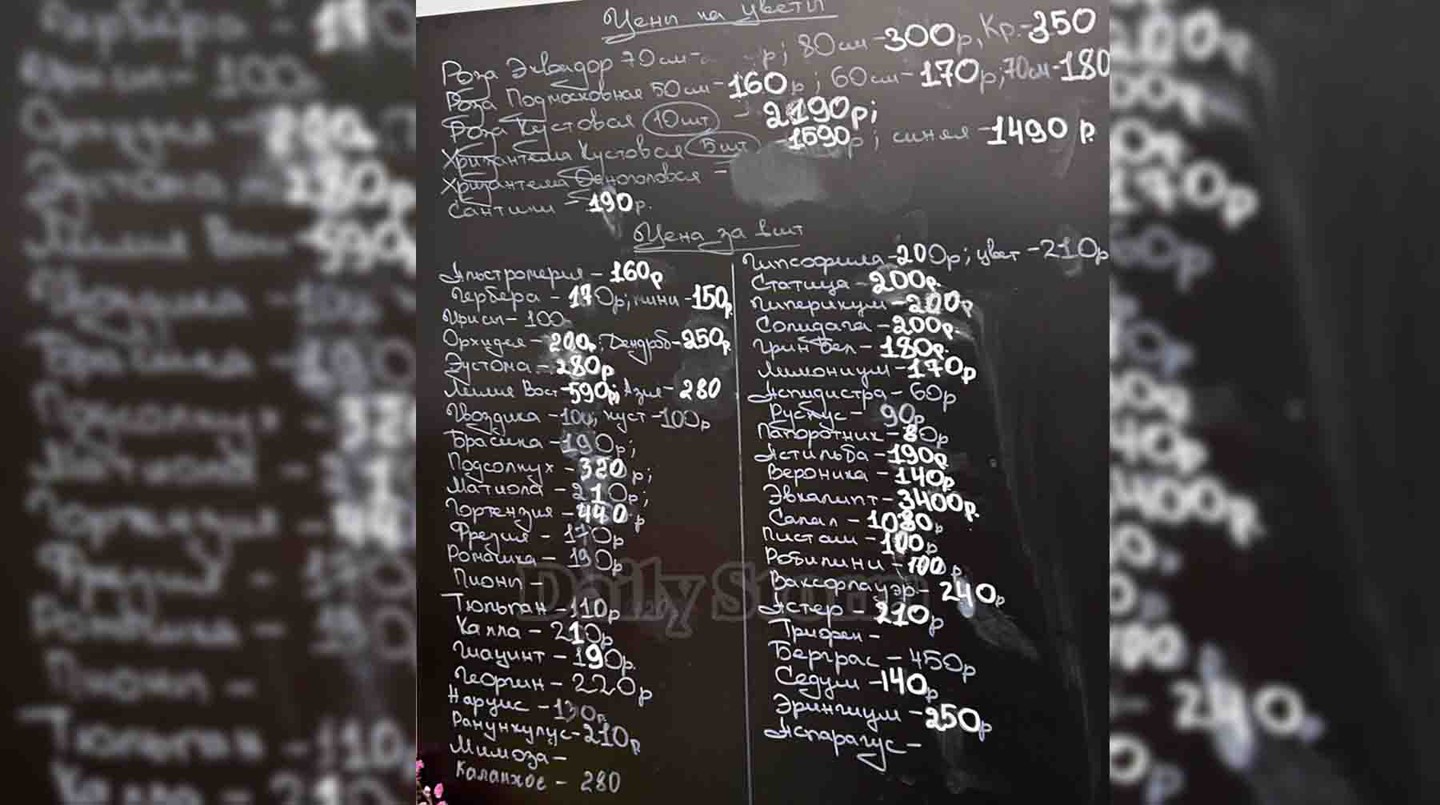 Цены на цветы
Роза Эквадор 70см- р; 80см-300р, Кр.-350
Роза Подмосковная 50см-160р; 60см-170р; 70см-180
Роза Кустовая 10шт - 2190р;
Хризантема Кустовая 5шт -1590р; синяя -1490 р.
Хризантема Одноголовая -
Сантини - 190р.
Цена за 1шт
Альстромерия - 160р
Гербера - 170р; мини -150р
Ирисы - 100
Орхидея - 200р; Дендроб-250р
Эустома - 280р
Лилия Вост-590р; Азия - 280
Гвоздика -100, куст -100р
Брасика -190р;
Подсолнух - 320р;
Матиола - 210р;
Гортензия - 440р
Фрезия - 170р
Ромашка - 190р
Пионы -
Тюльпан -110р
Калла - 210р
Гиацинт - 190р.
Георгин - 220р
Нарцис - 130р
Ранункулус-210р
Мимоза -
Каланхое - 280
Гипсофила-200р; цвет -210р
Статица - 200р.
Гиперикум -200р
Солидага -200р.
Грин Бел - 180р.
Лимониум -170р
Аспидистра - 60р
Рускус - 90р
Папоротник - 80р
Астильба -190р
Вероника - 140р
Эвкалипт - 3400р.
Салал - 1080р
Писташ - 100р
Робилини -100р
Ваксфлауэр - 240р
Астер - 210р
Трифен -
Берграс - 450р
Седум -140р
Эрингиум -250р
Аспарагус -
Daily Storm